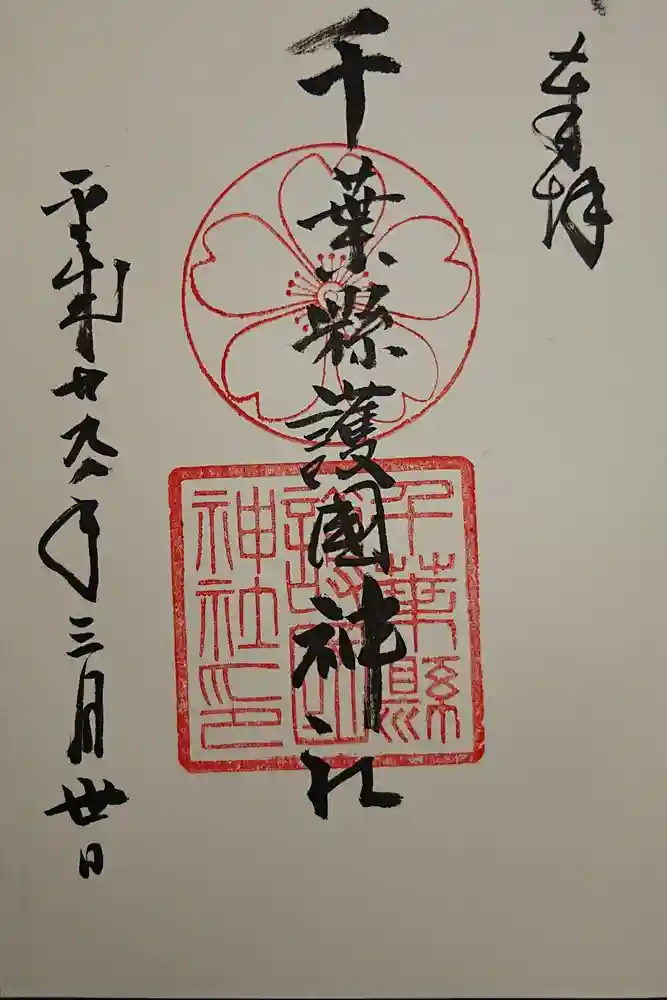 奉拝
千葉縣護國神社
千葉縣
護國
神社印
平成廿九年三月卅日